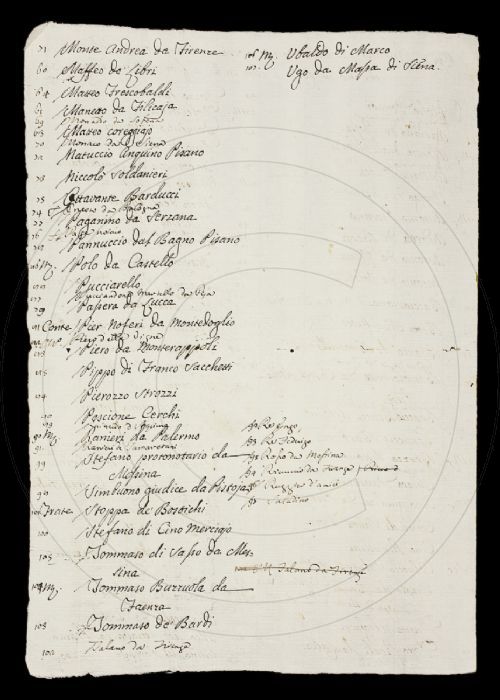 71 Monte Andrea da Firenze
60 Maffeo de Libri
64 Matteo Frescobaldi
Maneto da Filicaja
68 Matteo coreggiajo
70 Monaco da Siena
Natuccio Anquino Pisano
73 Niccolò Soldanieri
75 Ottavante Barducci
74 Onesto da Bologna
77 Paganino da Serzana
Pannuccio dal Bagno Pisano
Mʒ. Polo da Castello
Pucciarello
79 Passera da Lucca
Conte Pier Noferi da Montedoglio
Piero da Monterappoli
Pippo di Franco Sacchetti
Pierozzo Strozzi
90 Poscione Cerchi
Mʒ. Ranieri da Palermo
Stefano protonotario da
Messina
Simbuono giudice da Pistoja
Frate Stoppa de Bostichi
100 Stefano di Cino Merciajo
Tommaso di Sasso da Mes-
sina
Mʒ. Tommaso Buzzuola da
Faenza
Tommaso de Bardi
Talano da Firenze
106 Mʒ. Ubaldo di Marco
107. Ugo da Massa di Siena
Re Enzo
Rosso da Messina
Saladino
Talano da Firenze